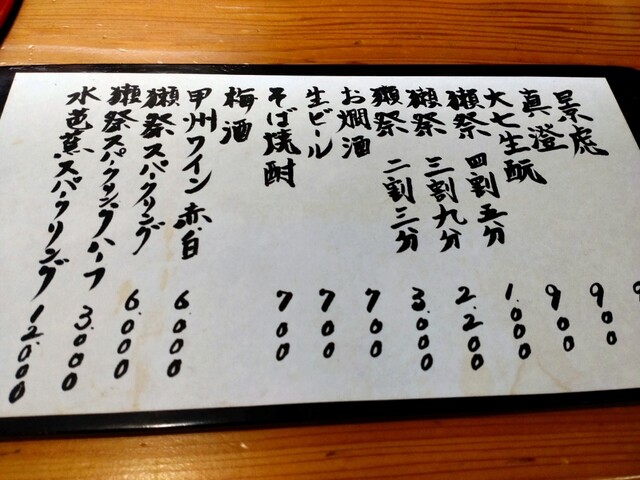 景虎 9
真澄 900
大七生酛 900
獺祭 四割五分 1.000
獺祭 三割九分 2.200
獺祭 二割三分 3.000
お燗酒 700
生ビール 700
そば焼酎 700
梅酒
甲州ワイン 赤・白 6.000
獺祭スパークリング 6.000
獺祭スパークリングハーフ 3.000
水芭蕉スパークリング 12.000